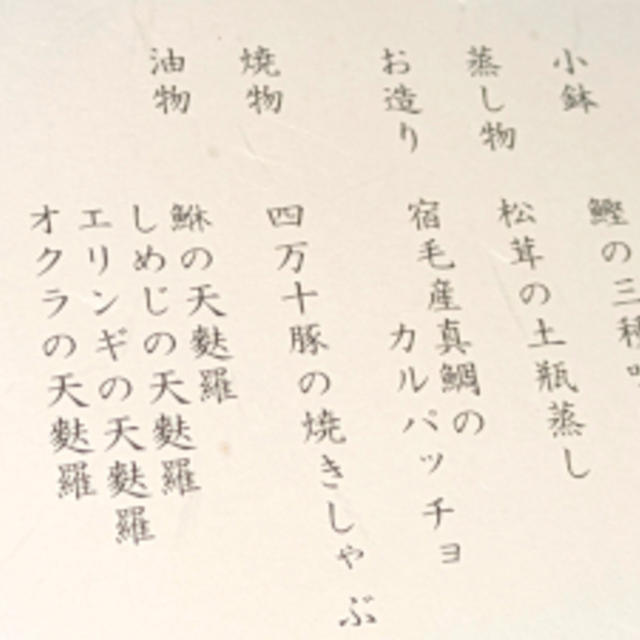 小鉢
鰹の三種
蒸し物
松茸の土瓶蒸し
お造り
宿毛産真鯛の
カルパッチョ
焼物
四万十豚の焼きしゃぶ
油物
の天麩羅
しめじの天麩羅
エリンギの天麩羅
オクラの天麩羅